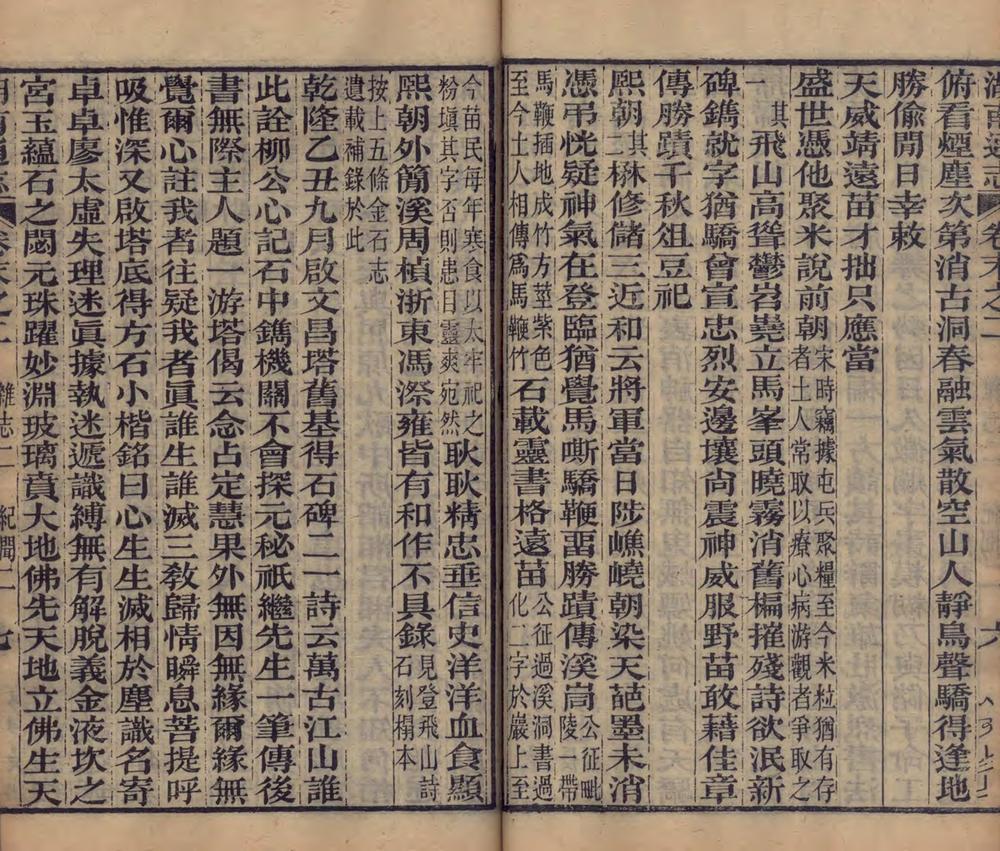 湖南通志 卷末之二 六
俯看煙塵次第消古洞春融雲氣散空山人靜鳥聲驕得逢地
勝偷閒日幸敕
天威靖遠苗才拙只應當
盛世憑他聚米說前朝宋時竊據屯兵聚糧至今米粒猶有存者土人常取以療心病游觀者爭取之
其一飛山高聳鬱岧嶢立馬峯頭曉霧消舊楄摧殘詩欲泯新
碑鐫就字猶驕曾宣忠烈安邊壤尙震神威服野苗敢藉佳章
傳勝蹟千秋俎豆祀
熙朝其二楙修儲三近和云將軍當日陟嶕嶢朝染天葩墨未消
憑弔恍疑神氣在登臨猶覺馬嘶驕鞭畱勝蹟傳溪峝公征毗陵一帶
馬鞭插地成竹方莖紫色至今土人相傳爲馬鞭竹石載靈書格遠苗公征過溪洞書過化二字於巖上至
今苗民每年寒食以太牢祀之粉塡其字否則患日靈爽宛然耿耿精忠垂信史洋洋血食顯
熙朝外簡溪周楨浙東馮漈雍皆有和作不具錄見登飛山詩石刻榻本
按上五條金石志遺載補錄於此
乾隆乙丑九月啟文昌塔舊基得石碑二一詩云萬古江山誰
此詮柳公心記石中鐫機關不會探元秘祇繼先生一筆傳後
書無際主人題一游塔偈云念占定慧果外無因無緣爾緣無
覺爾心註我者往疑我者眞誰生誰滅三敎歸情瞬息菩提呼
吸惟深又啟塔底得方石小楷銘曰心生生滅相於塵識名寄
卓卓廖太虛失理迷眞據執迷遞識縛無有解脫義金液坎之
宮玉蘊石之閟元珠躍妙淵玻璃賁大地佛先天地立佛生天
湖南通志 卷末之二 雜志二 紀聞二 七